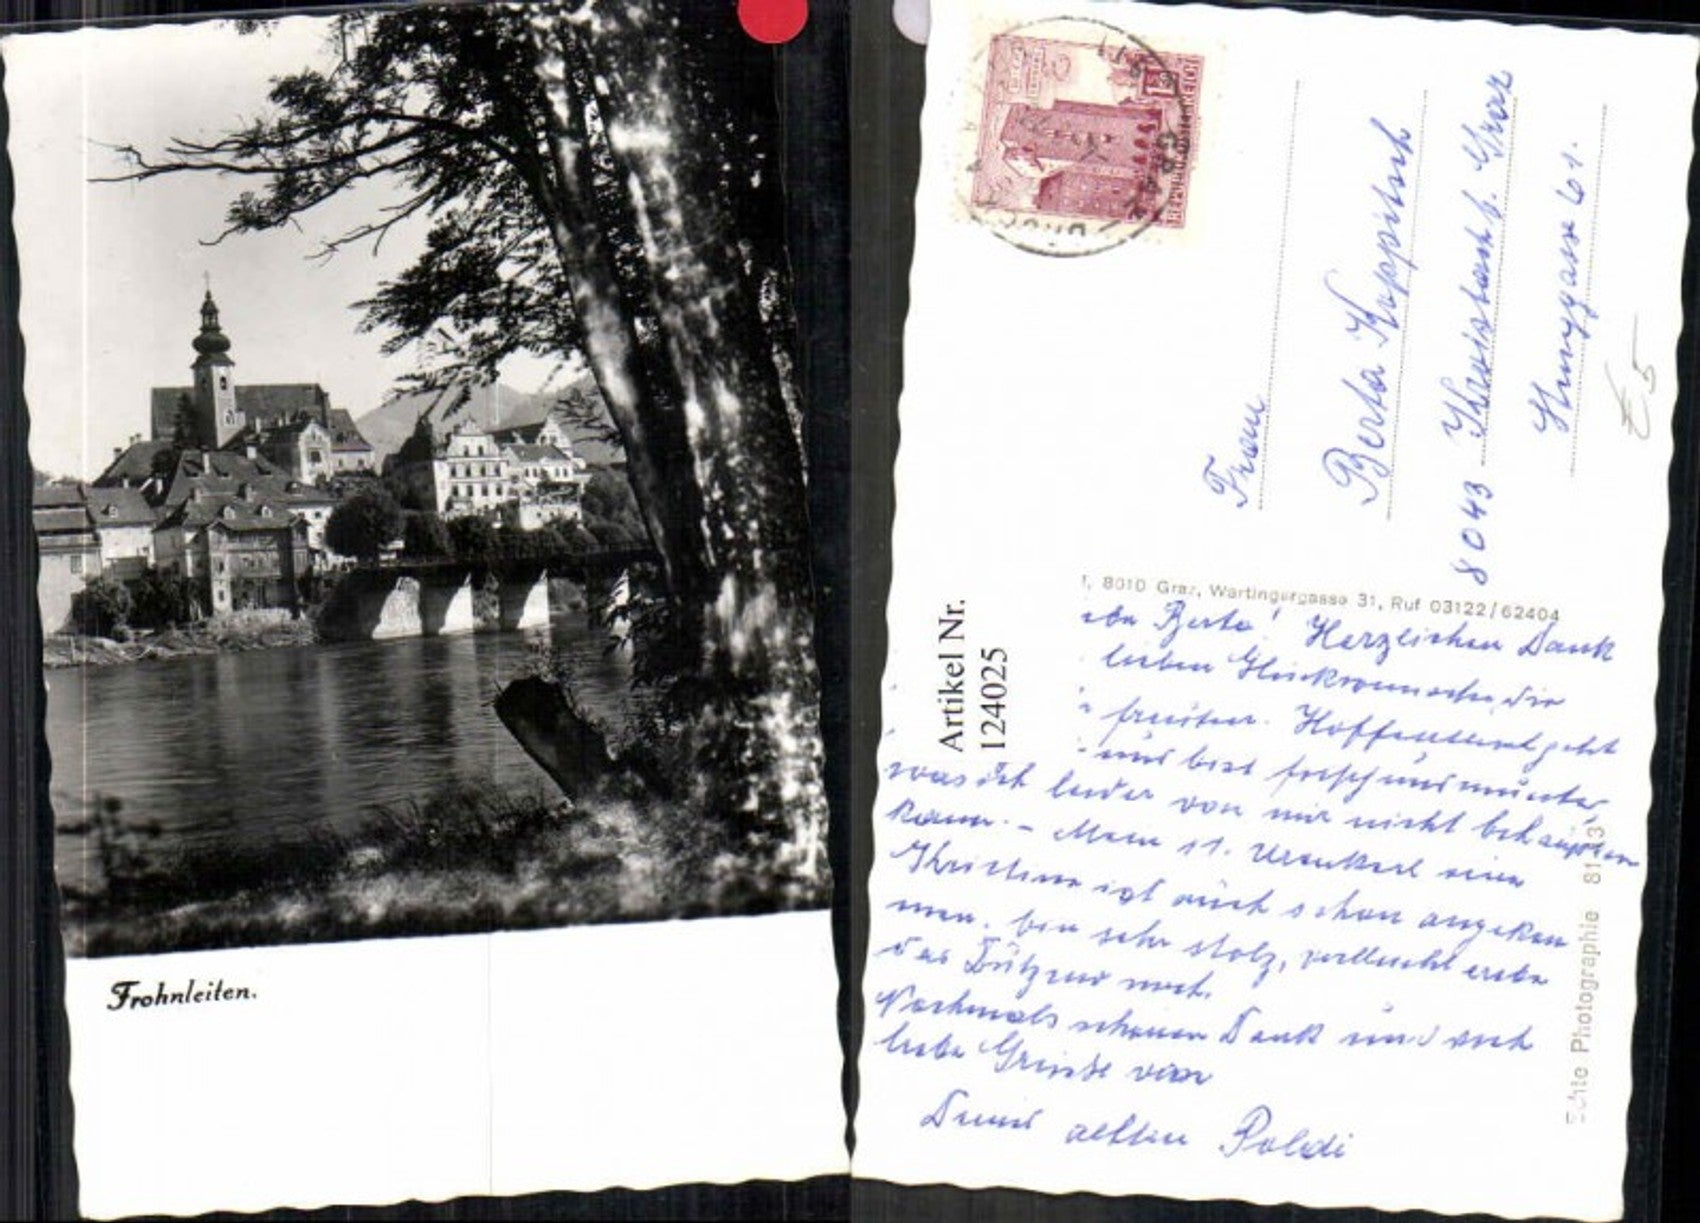 Frohnleiten.
REPUBLIK ÖSTERREICH
Frau
Berta Koppitsch
8043 - Kroisbach b. Graz
61.
E5
Artikel Nr.
124025
8010 Graz, Wartingergasse 31, Ruf 03122/62404
Echte Photographie 81
Berta! Herzlichen Dank
lieben Glückwunsche, die
freuten. Hoffentlich geht
und bist frisch und munter,
was ich leider von mir nicht behaupten
kann. - Mein 11. Urenkerl eine
Christine ist auch schon angekom
men. bin sehr stolz, vielleicht erlebe
das Dutzend noch.
Nochmals schönen Dank und auch
liebe Grüße von
Deiner alten Poldi